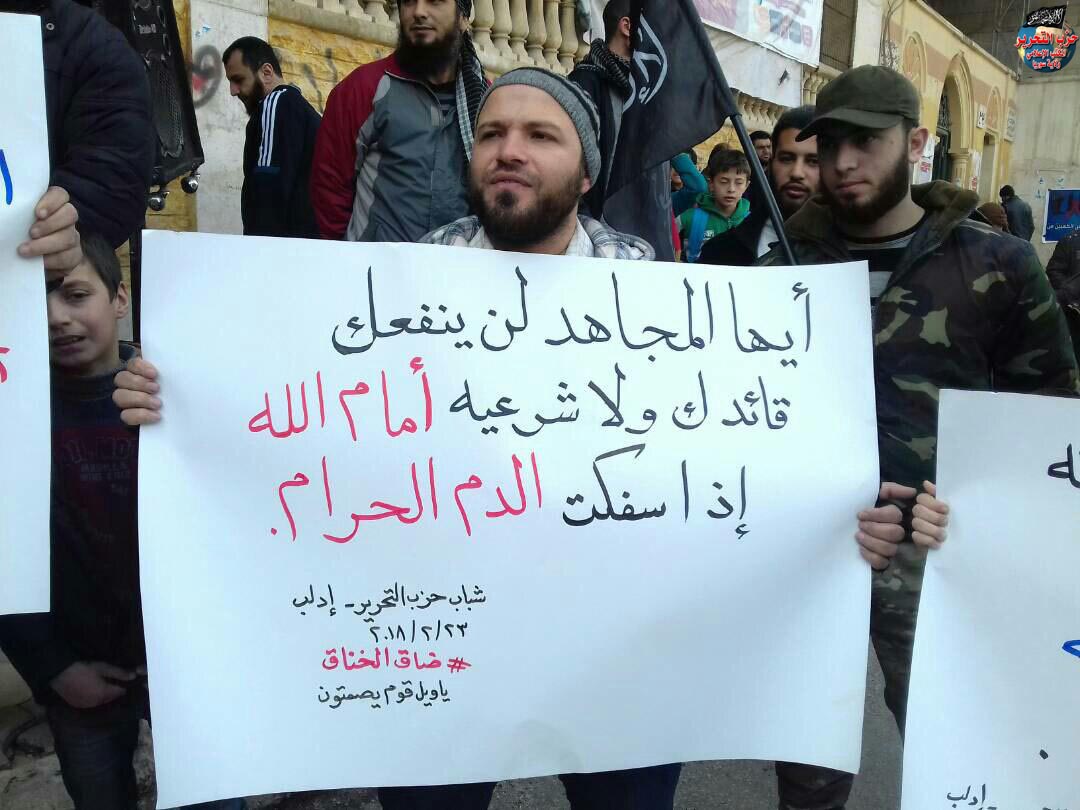 أيها المجاهد لن ينفعك
قائدك ولا شرعيه أمام الله
إذا سفكت الدم الحرام.
شباب حزب التحرير - إدلب
٢٠١٨/٢/٢٣
#ضاق الخناق
ياويل قوم يصمتون
حزب التحرير
المكتب الإعلامي
ولاية سوريا
إدلب